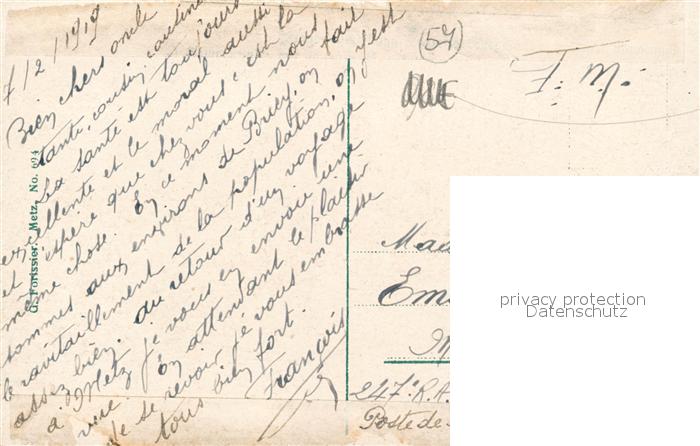 7/2/1919
Bien chers oncle
tante, cousin, cousine
La santé est toujours
excellente et le moral aussi
et j'espère que chez vous c'est la
même chose. En ce moment nous
sommes aux environs de Briey, on fait
le ravitaillement de la population, on y est
assez bien. au retour d'un voyage
à Metz je vous en envoie une
vue. En attendant le plaisir
de se revoir je vous embrasse
tous bien fort.
François
G. Forissier, Metz, No. 694
57
F. M.
Mad
Em
247e R.A.
Poste de
privacy protection
Datenschutz